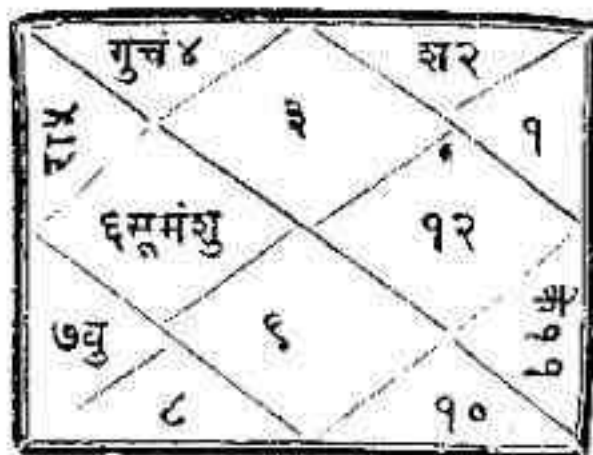 गुचं ४
श २
३
रा ५
१
६ सू मं शु
१२
के ११
७ बु
९
८
१०